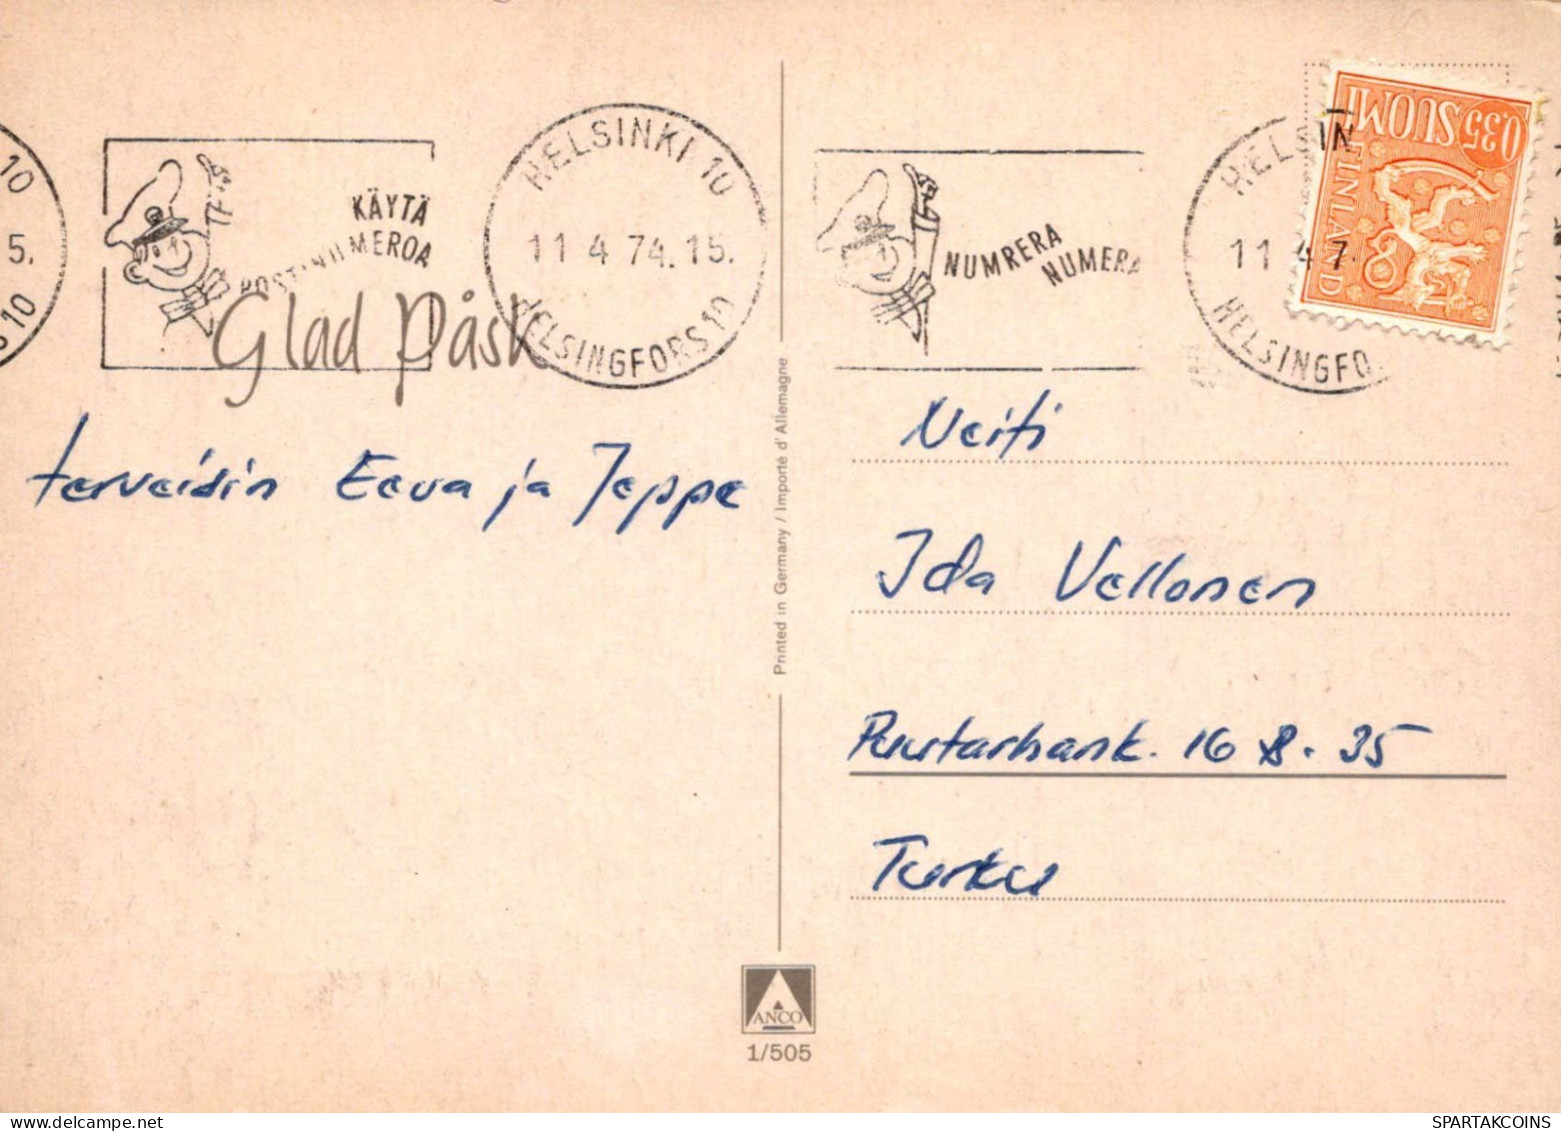 10
5.
10
KÄYTÄ
POSTINUMEROA
HELSINKI 10
11 4 74.15.
HELSINGFORS 10
NUMRERA
NUMERA
HELSIN
11 4 7
HELSINGFO
0,35 SUOMI
FINLAND
Glad Påsk
terveisin Eeva ja Jeppe
Printed in Germany / Importé d'Allemagne
Neiti
Ida Vellonen
Puutarhank. 16 B. 35
Turku
ANCO
1/505
SPARTAKCOINS